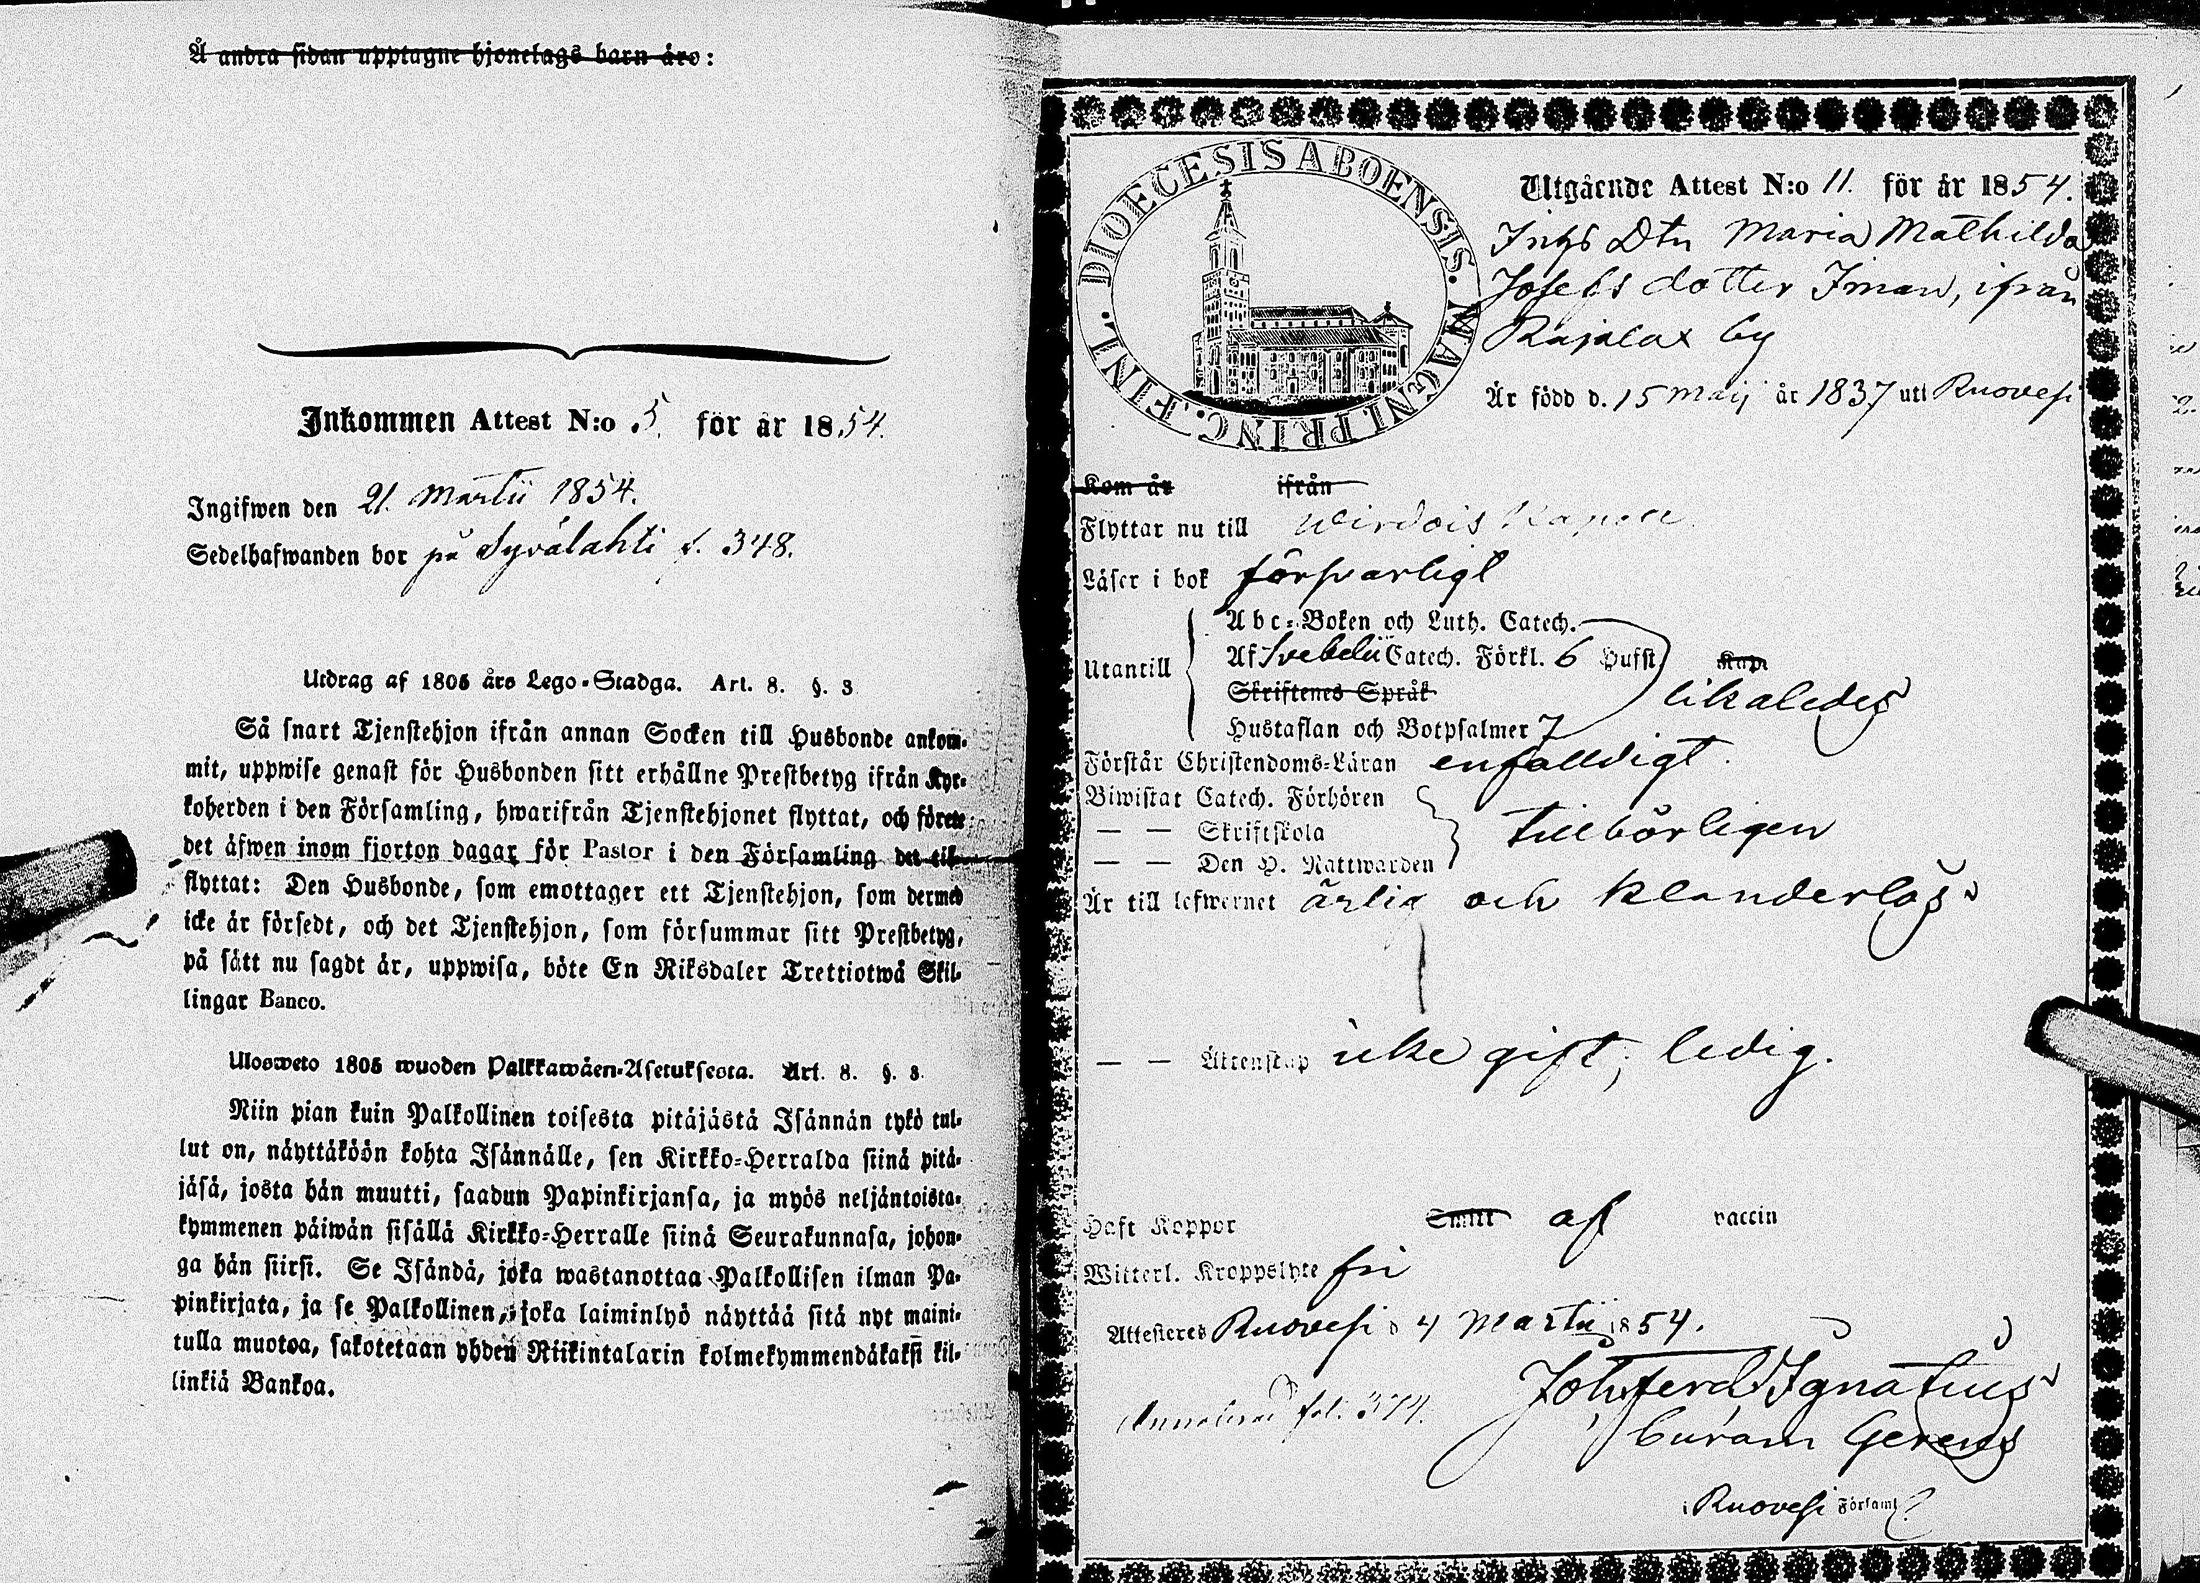 Å andra sidan upptagne hjonelags barn äro:
Inkommen Attest N:o 5. för år 1854.
Ingifwen den 21. Martii 1854.
Sedelhafwanden bor på Syvälahti s. 348.
Utdrag af 1805 års Lego-Stadga. Art. 8. §. 3
Så snart Tjenstehjon ifrån annan Socken till Husbonde ankom-
mit, uppwise genast för Husbonden sitt erhållne Prestbetyg ifrån Kyr-
koherden i den Församling, hwarifrån Tjenstehjonet flyttat, och förete
det äfwen inom fjorton dagar för Pastor i den Församling det till-
flyttat: Den Husbonde, som emottager ett Tjenstehjon, som dermed
icke är försedt, och det Tjenstehjon, som försummar sitt Prestbetyg,
på sätt nu sagdt är, uppwisa, böte En Riksdaler Trettiotwå Skil-
lingar Banco.
Ulosweto 1805 wuoden Palkkawäen-Asetuksesta. Art. 8. §. 3.
Niin pian kuin Palkollinen toisesta pitäjästä Isännän tykö tul-
lut on, näyttäköön kohta Isännälle, sen Kirkko-Herralda siinä pitä-
jäsä, josta hän muutti, saadun Papinkirjansa, ja myös neljäntoista-
kymmenen päiwän sisällä Kirkko-Herralle siinä Seurakunnasa, johon-
ga hän siirsi. Se Isändä, joka wastanottaa Palkollisen ilman Pa-
pinkirjata, ja se Palkollinen, joka laiminlyö näyttää sitä nyt maini-
tulla muotoa, sakotetaan yhden Riikintalarin kolmekymmendäkaksi kil-
linkiä Bankoa.
DIOECESIS ABOENSIS. MAGNI. PRINC. FINL.
Utgående Attest N:o 11. för år 1854.
Dtn Maria Mathilda
Josefs dotter Iman, ifrån
Rajalax by
Är född d. 15 Maij år 1837 uti Ruovesi
Kom år ifrån
Flyttar nu till Wirdois Kapell
Läser i bok försvarligt
Utantill
Abc-Boken och Luth. Catech.
Af Svebelii Catech. Förkl. 6 Hufst. Kap.
Skriftenes Språk likaledes
Hustaflan och Botpsalmer 7
Förstår Christendoms-Läran enfalldigt.
Biwistat Catech. Förhören
— — Skriftskola tillbörligen
— — Den H. Nattwarden
Är till lefwernet ärlig och klanderlös
— — Äktenskap icke gift, ledig.
Haft Koppor Smitt af vaccin
Witterl. Kroppslyte fri
Attesteres Ruovesi d 4 Martii 1854.
Joh. Ferd. Ignatius
Curam Gerens
i Ruovesi Församl.
fol. 374.